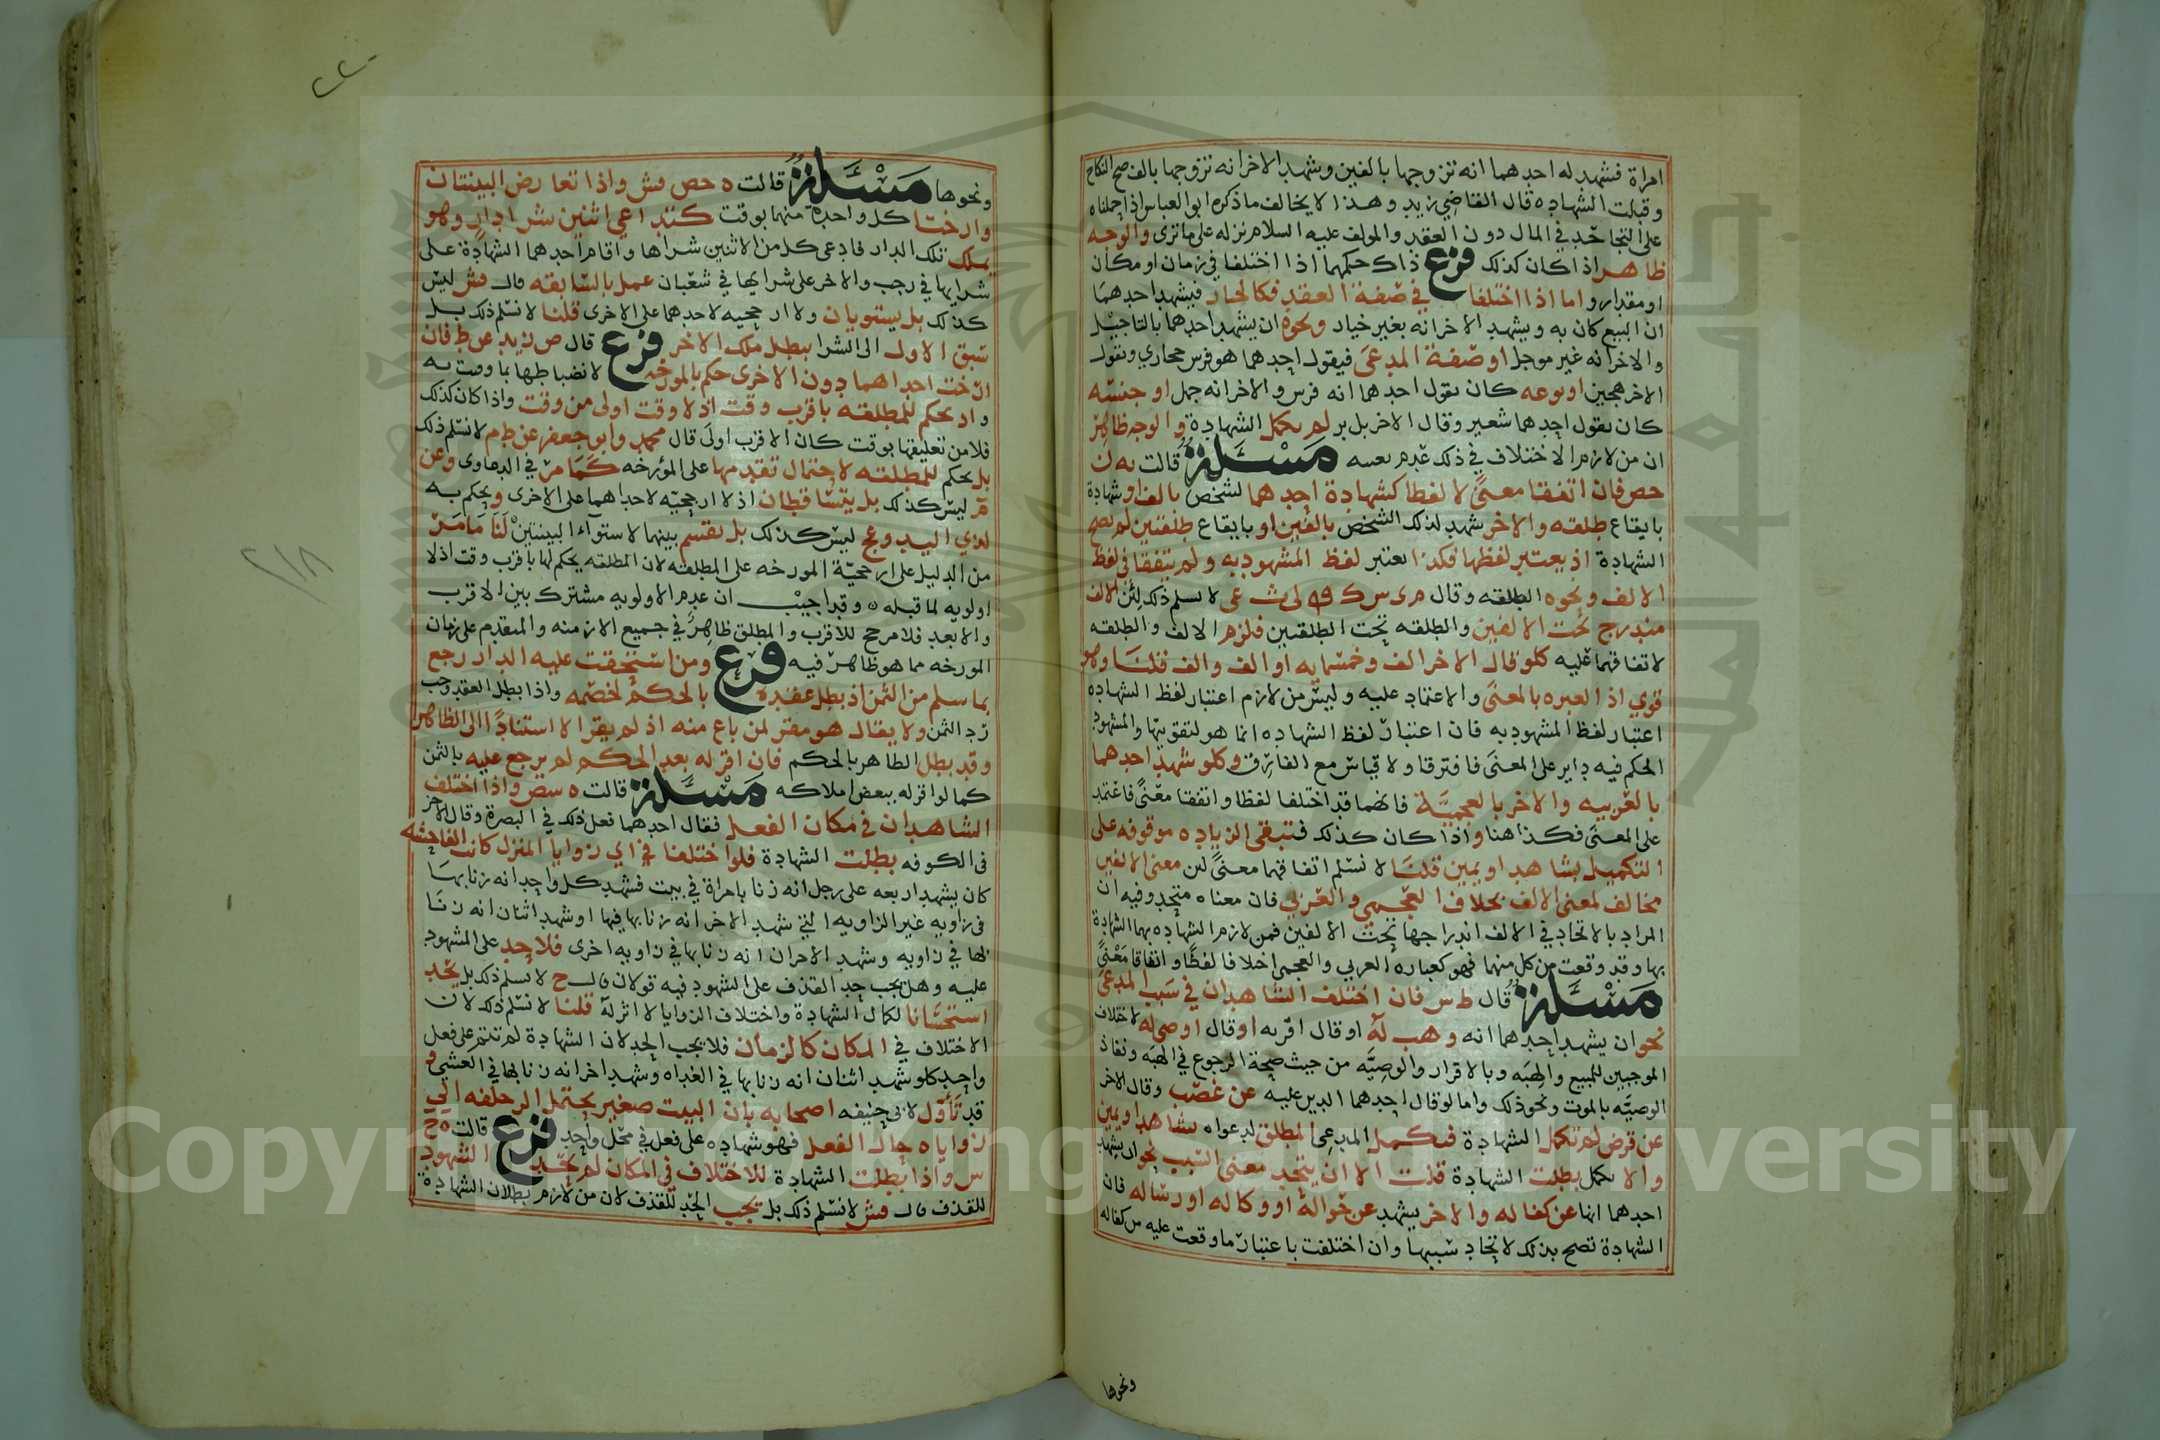 امراة فشهد له احدهما انه تزوجها بالفين وشهد الاخر انه تزوجها بالف صح النكاح
وقبلت الشهاده قال القاضي زيد وهذا لا يخالف ما ذكره ابو العباس اذا حملناه
على التجاحد في المال دون العقد والمولف عليه السلام نزله على ما ترى والوجه
ظاهر اذا كان كذلك فرع ذاك حكمهما اذا اختلفا في زمان او مكان
او مقدار واما اذا اختلفا في صفة العقد فكالخيار فيشهد احدهما
ان البيع كان به ويشهد الاخر انه بغير خيار ونحوه ان يشهد احدهما بالتاجيل
والاخر انه غير موجل او صفة المدعى فيقول احدهما هو فرس حجازي ويقول
الاخر هجين او نوعه كان يقول احدهما انه فرس والاخر انه جمل او جنسه
كان يقول احدهما شعير وقال الاخر بل بر لم يكمل الشهادة والوجه ظاهر
ان من لازم الاختلاف في ذلك عدم مسئلة قالت
حص فان اتفقا معنى لا لفظا كشهادة احدهما لشخص بالف او شهادة
بايقاع طلقه والاخر شهد لذلك الشخص بالفين او بايقاع طلقتين لم تصح
الشهادة اذ يعتبر لفظها فكذا يعتبر لفظ المشهود به ولم يتفقا في لفظ
الالف ونحوه الطلقه وقال لا نسلم ذلك لئن الالف
مندرج تحت الالفين والطلقه تحت الطلقتين فلزم الالف والطلقه
لاتفاقهما عليه كلو قال الاخر الف وخمسمايه او الف والف قلنا وهو
قوي اذ العبره بالمعنى والاعتماد عليه وليس من لازم اعتبار لفظ الشهاده
اعتبار لفظ المشهود به فان اعتبار لفظ الشهاده انما هو لتقويتها والمشهود
الحكم فيه داير على المعنى فافترقا ولا قياس مع الفارق وكلو شهد احدهما
بالعربيه والاخر بالعجميه فانهما قد اختلفا لفظا واتفقا معنى فاعتمد
على المعنى فكذا هنا واذا كان كذلك فتبقى الزياده موقوفه على
التكميل بشاهد او يمين قلنا لا نسلم اتفاقهما معنى لئن معنى الالفين
مخالف لمعنى الالف بخلاف العجمي والعربي فان معناه متحد وفيه ان
المراد بالاتحاد في الالف اندراجها تحت الالفين فمن لازم الشهاده بهما الشهادة
بها وقد وقعت من كل منهما فهو كعباره العربي والعجمي اختلافا لفظا واتفاقا معنى
مسئلة قال ط س فان اختلف الشاهدان في سبب المدعى
نحو ان يشهد احدهما انه وهب له او قال اقر به او قال اوصى له لاختلاف
الموجبين للمبيع والهبه وبالاقرار والوصيه من حيث صحة الرجوع في الهبه ونفاذ
الوصيه بالموت ونحو ذلك واما لو قال احدهما الدين عليه عن غصب وقال الاخر
عن قرض لم تكمل الشهادة فيكمل المدعي المطلق لدعواه بشاهد او يمين
والا يكمل بطلت الشهادة قلت الا ان يتحد معنى السبب نحو ان يشهد
احدهما انها عن كفاله والاخر يشهد عن حواله او وكاله او رساله فان
الشهادة تصح بذلك لاتحاد سببها وان اختلفت باعتبار ما وقعت عليه من كفاله
ونحوها
ونحوها مسئلة قالت ه حص مش واذا تعارض البينتان
وارختا كل واحدة منهما بوقت كتداعي اثنين شرا دار وهو
يملك تلك الدار فادعى كل من الاثنين شراها واقام احدهما الشهادة على
شرايها في رجب والاخر على شرايها في شعبان عمل بالسابقه وقال مش ليس
كذلك بل يستويان ولا ارجحيه لاحدهما على الاخرى قلنا لا نسلم ذلك بل
سبق الاول الى الشرا يبطل ملك الاخر فرع قال ص زيد عن ط فان
ارخت احداهما دون الاخرى حكم بالمورخه لانضباطها بما وقتت به
واد يحكم للمطلقه باقرب وقت اذ لا وقت اولى من وقت واذا كان كذلك
فلا من تعليقها بوقت كان الاقرب اولى قال محمد وابو جعفر عن ط م لا نسلم ذلك
بل يحكم للمطلقه لاحتمال تقدمها على المؤرخه كما مر في الدعاوى وعن
م ليس كذلك بل يتساقطان اذ لا ارجحيه لاحداهما على الاخرى ويحكم به
لذي اليد وعج ليس كذلك بل يقسم بينهما لاستوآء البينتين لنا ما مر
من الدليل على ارجحية المورخه على المطلقه لان المطلقه يحكم لها باقرب وقت اذ لا
اولويه لما قبله وقد اجيب ان عدم الاولويه مشترك بين الاقرب
والابعد فلا مرجح للاقرب والمطلق ظاهر في جميع الازمنه والمتقدم على زمان
المورخه مما هو ظاهر فيه فرع ومن استحقت عليه الدار رجع
بما سلم من الثمن اذ بطل عقده بالحكم لخصمه واذا بطل العقد وجب
رد الثمن ولا يقال هو مقر لمن باع منه اذ لم يقر الا استنادا الى الظاهر
وقد بطل الظاهر بالحكم فان اقر له بعد الحكم لم يرجع عليه بالثمن
كما لو اقر له ببعض املاكه مسئلة قالت ه سص واذا اختلف
الشاهدان في مكان الفعل فقال احدهما فعل ذلك في البصرة وقال الاخر
في الكوفه بطلت الشهادة فلو اختلفا في اي زوايا المنزل كانت الفاحشه
كان يشهد اربعه على رجل انه زنا بامراة في بيت فشهد كل واحد انه زنا بها
في زاويه غير الزاويه التي شهد الاخر انه زنا بها فيها او شهد اثنان انه زنا
بها في زاويه وشهد الاخران انه زنا بها في زاويه اخرى فلا حد على المشهود
عليه وهل يجب حد القذف على الشهود فيه قولان قال ح لا نسلم ذلك بل يحد
استحسانا لكمال الشهادة واختلاف الزوايا لا اثر له قلنا لا نسلم ذلك لان
الاختلاف في المكان كالزمان فلا يجب الحد لان الشهادة لم تتم على فعل
واحد كلو شهد اثنان انه زنا بها في الغداه وشهد اخر انه زنا بها في العشي و
قد تأول لابي حنيفه اصحابه بان البيت صغير يحتمل الزحلفه الى
زواياه حال الفعل فهو شهاده على فعل في محل واحد فرع قالت ه ح
س واذا بطلت الشهادة للاختلاف في المكان لم يحد الشهود
للقذف وقال مش لا نسلم ذلك بل يجب الحد للقذف لان من لازم بطلان الشهادة
٢١٨
Copyright © King Saud University